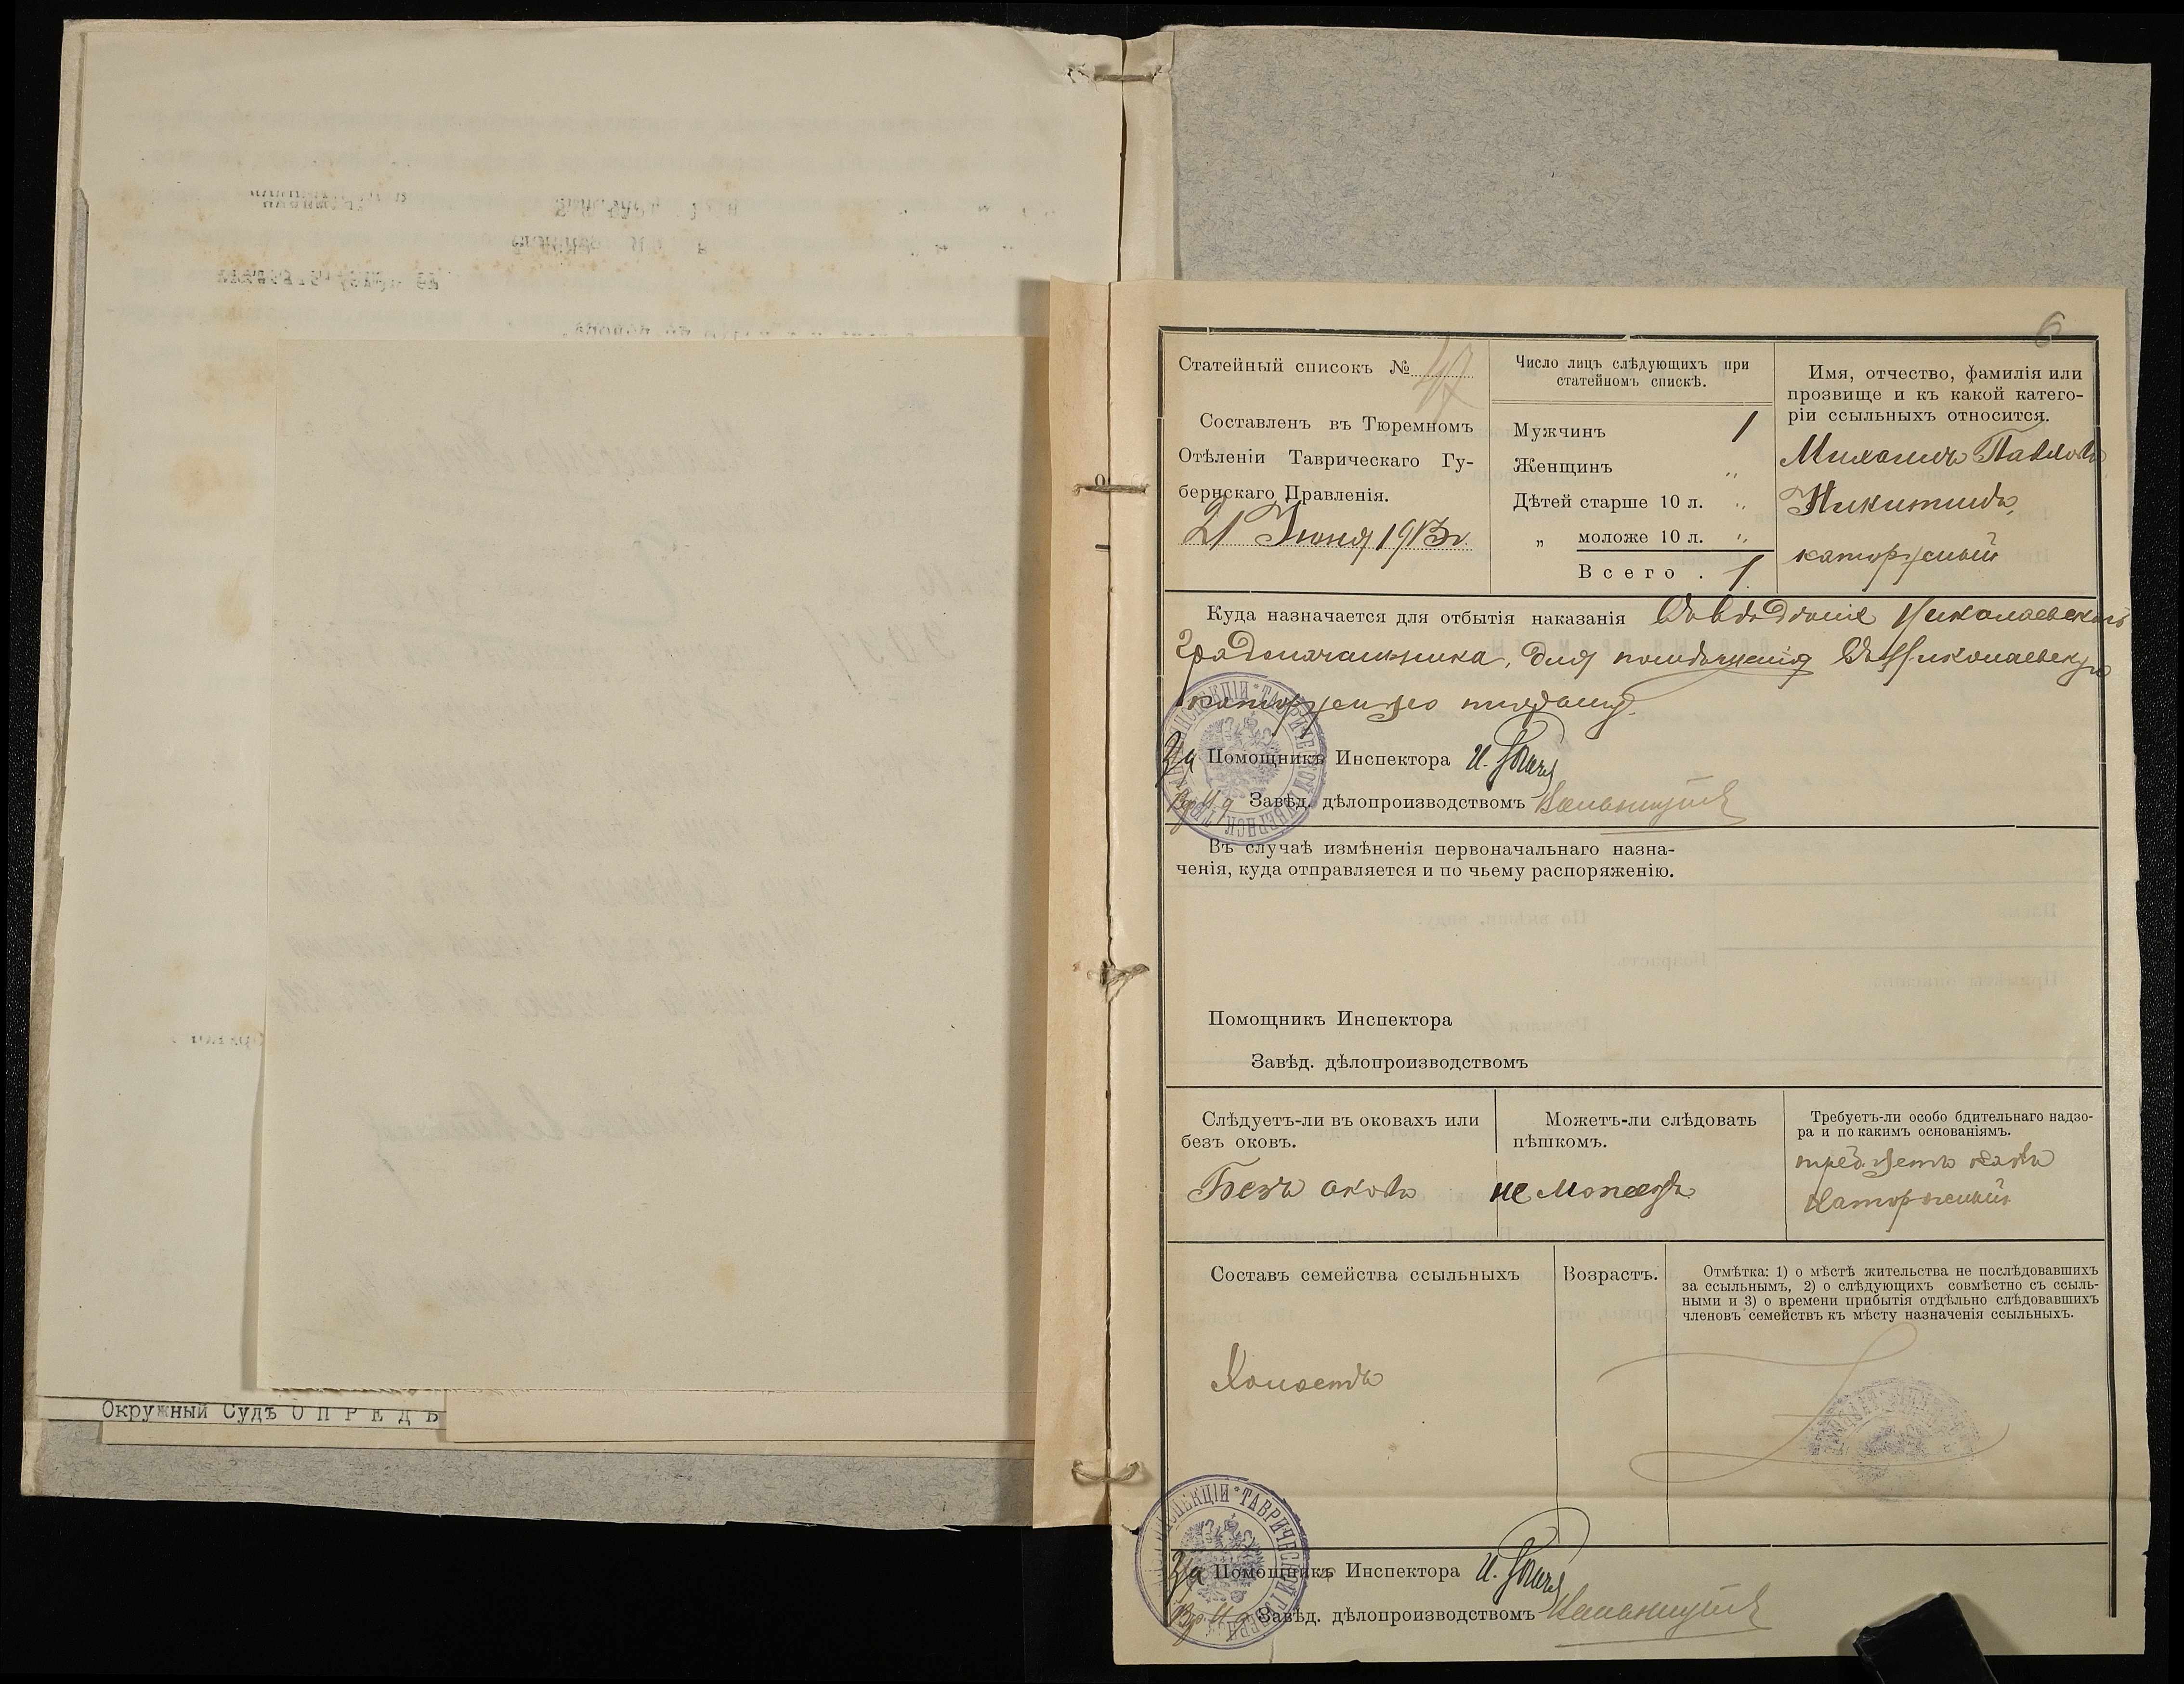 Окружный Судъ О П Р Е Д Ѣ
6
Статейный списокъ № 47
Составленъ въ Тюремномъ
Отѣленіи Таврическаго Гу-
бернскаго Правленія.
21 Іюня 1913 г.
Число лицъ слѣдующихъ при
статейномъ спискѣ.
Мужчинъ 1
Женщинъ „
Дѣтей старше 10 л. „
„ моложе 10 л. „
Всего . 1
Имя, отчество, фамилія или
прозвище и къ какой катего-
ріи ссыльныхъ относится.
Михаилъ Павловъ
Никитинъ,
каторжный
Куда назначается для отбытія наказанія Въ вѣдѣніе Николаевскаго
Градоначальника, для помѣщенія въ Николаевскую
каторжную тюрьму.
За Помощникъ Инспектора И.
Вр. И. д. Завѣд. дѣлопроизводствомъ
Въ случаѣ измѣненія первоначальнаго назна-
ченія, куда отправляется и по чьему распоряженію.
Помощникъ Инспектора
Завѣд. дѣлопроизводствомъ
Слѣдуетъ-ли въ оковахъ или
безъ оковъ.
Безъ оковъ
Можетъ-ли слѣдовать
пѣшкомъ.
не можетъ
Требуетъ-ли особо бдительнаго надзо-
ра и по какимъ основаніямъ.
требуетъ какъ
каторжный
Составъ семейства ссыльныхъ
Холостъ
Возрастъ.
Отмѣтка: 1) о мѣстѣ жительства не послѣдовавшихъ
за ссыльнымъ, 2) о слѣдующихъ совмѣстно съ ссыль-
ными и 3) о времени прибытія отдѣльно слѣдовавшихъ
членовъ семействъ къ мѣсту назначенія ссыльныхъ.
За Помощникъ Инспектора И.
Вр. И. д. Завѣд. дѣлопроизводствомъ